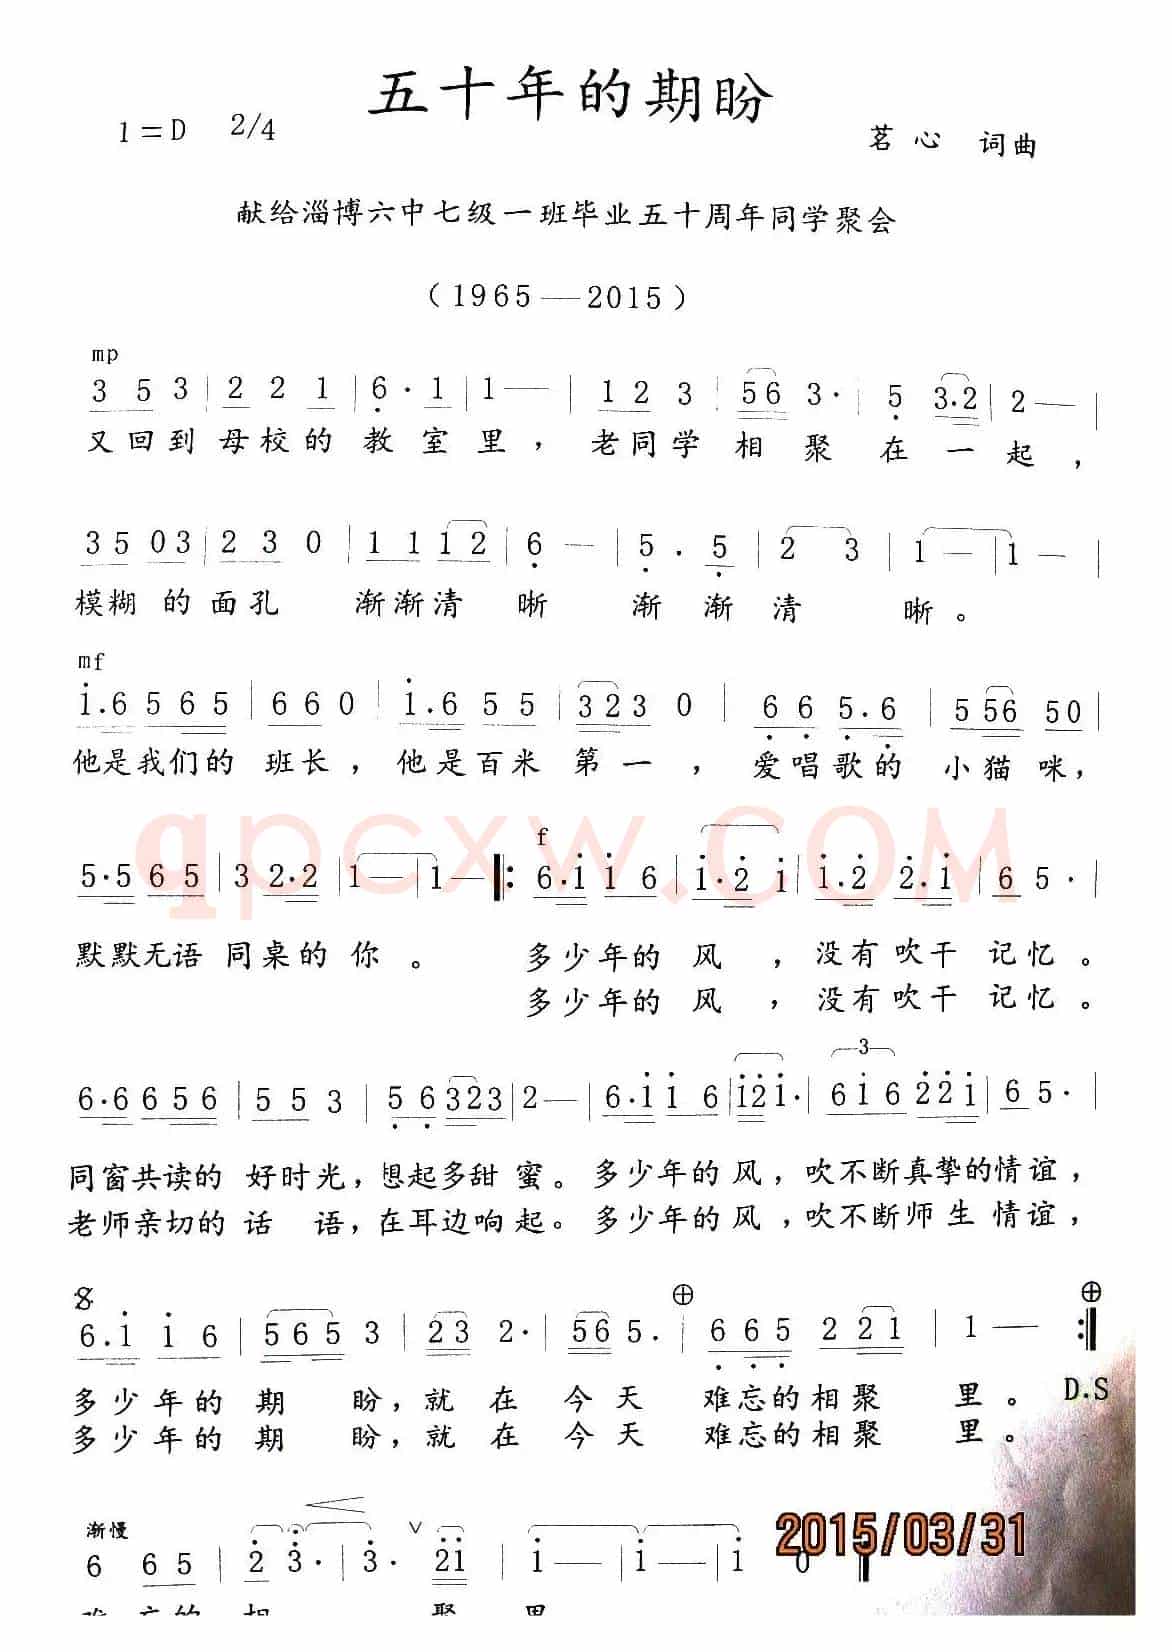 五十年的期盼
1=D 2/4
茗心 词曲
献给淄博六中七级一班毕业五十周年同学聚会
(1965—2015)
mp
3 5 3 | 2 2 1 | 6· 1 | 1 — | 1 2 3 | 56 3· | 5 3·2 | 2 — |
又回到母校的教室里，老同学相聚在一起，
35 03 | 2 3 0 | 1 1 12 | 6 — | 5 · 5 | 2 3 | 1 — | 1 — |
模糊的面孔 渐渐清晰 渐渐清晰。
mf
1·6 565 | 660 | 1·6 55 | 323 0 | 66 5·6 | 556 50 |
他是我们的班长，他是百米第一，爱唱歌的小猫咪，
f
5·5 65 | 3 2·2 | 1— | 1— ‖: 6·1 16 | 1·2 1 | 1·2 2·1 | 6 5· |
默默无语同桌的你。 多少年的风，没有吹干记忆。
多少年的风，没有吹干记忆。
3
6·6 656 | 553 | 56 323 | 2— | 6·1 16 | 121· | 616 221 | 65· |
同窗共读的好时光，想起多甜蜜。多少年的风，吹不断真挚的情谊，
老师亲切的话语，在耳边响起。多少年的风，吹不断师生情谊，
6·1 16 | 565 3 | 23 2· | 56 5· | 665 221 | 1 — :‖
多少年的期盼，就在今天 难忘的相聚里。 D.S
多少年的期盼，就在今天 难忘的相聚里。
渐慢
6 65 | 2 3· | 3· 21 | 1— | 1— | 1 0 ‖
难忘的相聚里
qpcxw.COM
2015/03/31